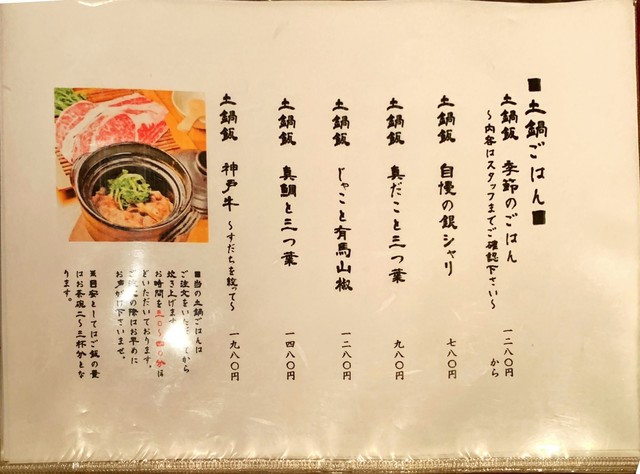 ■土鍋ごはん■
土鍋飯 季節のごはん 一二八〇円 から
～内容はスタッフまでご確認下さい～
土鍋飯 自慢の銀シャリ 七八〇円
土鍋飯 真だこと三つ葉 九八〇円
土鍋飯 じゃこと有馬山椒 一二八〇円
土鍋飯 真鯛と三つ葉 一四八〇円
土鍋飯 神戸牛 ～すだちを絞って～ 一九八〇円
■当の土鍋ごはんは
ご注文をいただいてから
炊き上げます
お時間を三〇～四〇分ほ
どいただいております。
ご の際はお早めに
お声がけ下さいませ。
※目安としてはご飯の量
はお茶碗二～三杯分とな
ります。